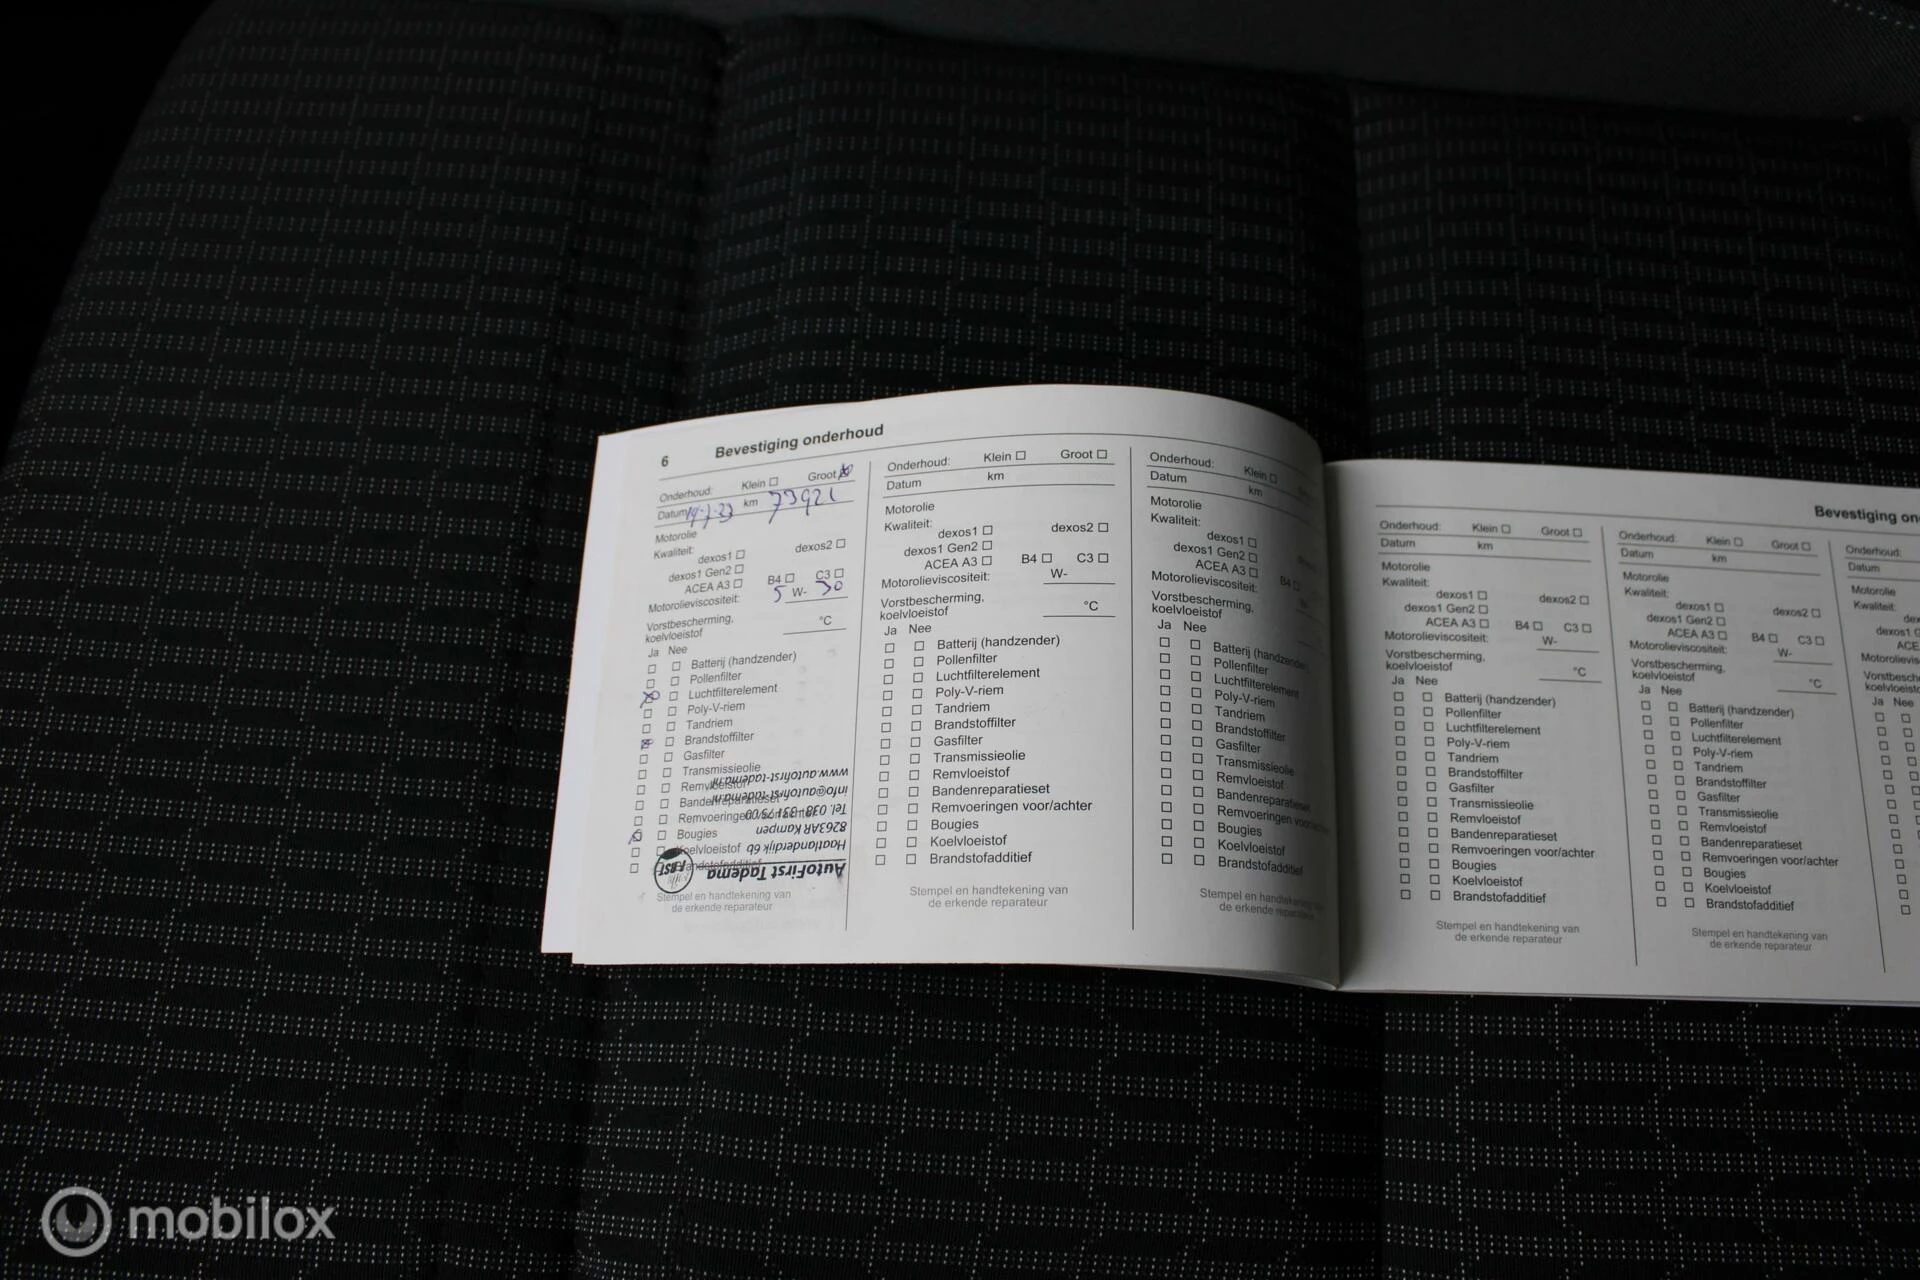 6 Bevestiging onderhoud
Onderhoud: Klein Groot
Datum km 73921
Motorolie
Kwaliteit:
dexos1 dexos2
dexos1 Gen2
ACEA A3 B4 C3
Motorolieviscositeit: 5 W- 30
Vorstbescherming,
koelvloeistof °C
Ja Nee
Batterij (handzender)
Pollenfilter
Luchtfilterelement
Poly-V-riem
Tandriem
Brandstoffilter
Gasfilter
Transmissieolie
Remvloeistof
Bandenreparatieset
Remvoeringen voor/achter
Bougies
Koelvloeistof
Brandstofadditief
Stempel en handtekening van
de erkende reparateur
AutoFirst Tadema
Haatlanderdijk 6b
8263AR Kampen
Tel. 038-331 75 00
info@autofirst-tadema.nl
www.autofirst-tadema.nl
FIRST
Onderhoud: Klein Groot
Datum km
Motorolie
Kwaliteit:
dexos1 dexos2
dexos1 Gen2
ACEA A3 B4 C3
Motorolieviscositeit: W-
Vorstbescherming,
koelvloeistof °C
Ja Nee
Batterij (handzender)
Pollenfilter
Luchtfilterelement
Poly-V-riem
Tandriem
Brandstoffilter
Gasfilter
Transmissieolie
Remvloeistof
Bandenreparatieset
Remvoeringen voor/achter
Bougies
Koelvloeistof
Brandstofadditief
Stempel en handtekening van
de erkende reparateur
Onderhoud: Klein
Datum km
Motorolie
Kwaliteit:
dexos1
dexos1 Gen2
ACEA A3 B4
Motorolieviscositeit:
Vorstbescherming,
koelvloeistof
Ja Nee
Batterij (handzender)
Pollenfilter
Luchtfilterelement
Poly-V-riem
Tandriem
Brandstoffilter
Gasfilter
Transmissieolie
Remvloeistof
Bandenreparatieset
Remvoeringen voor/achter
Bougies
Koelvloeistof
Brandstofadditief
Stempel en handtekening van
de erkende reparateur
Bevestiging on
Onderhoud: Klein Groot
Datum km
Motorolie
Kwaliteit:
dexos1 dexos2
dexos1 Gen2
ACEA A3 B4 C3
Motorolieviscositeit: W-
Vorstbescherming,
koelvloeistof °C
Ja Nee
Batterij (handzender)
Pollenfilter
Luchtfilterelement
Poly-V-riem
Tandriem
Brandstoffilter
Gasfilter
Transmissieolie
Remvloeistof
Bandenreparatieset
Remvoeringen voor/achter
Bougies
Koelvloeistof
Brandstofadditief
Stempel en handtekening van
de erkende reparateur
Onderhoud: Klein Groot
Datum km
Motorolie
Kwaliteit:
dexos1 dexos2
dexos1 Gen2
ACEA A3 B4 C3
Motorolieviscositeit: W-
Vorstbescherming,
koelvloeistof °C
Ja Nee
Batterij (handzender)
Pollenfilter
Luchtfilterelement
Poly-V-riem
Tandriem
Brandstoffilter
Gasfilter
Transmissieolie
Remvloeistof
Bandenreparatieset
Remvoeringen voor/achter
Bougies
Koelvloeistof
Brandstofadditief
Stempel en handtekening van
de erkende reparateur
Onderhoud:
Datum
Motorolie
Kwaliteit:
dex
dexos1 G
ACE
Motorolievis
Vorstbesch
koelvloeist
Ja Nee
mobilox